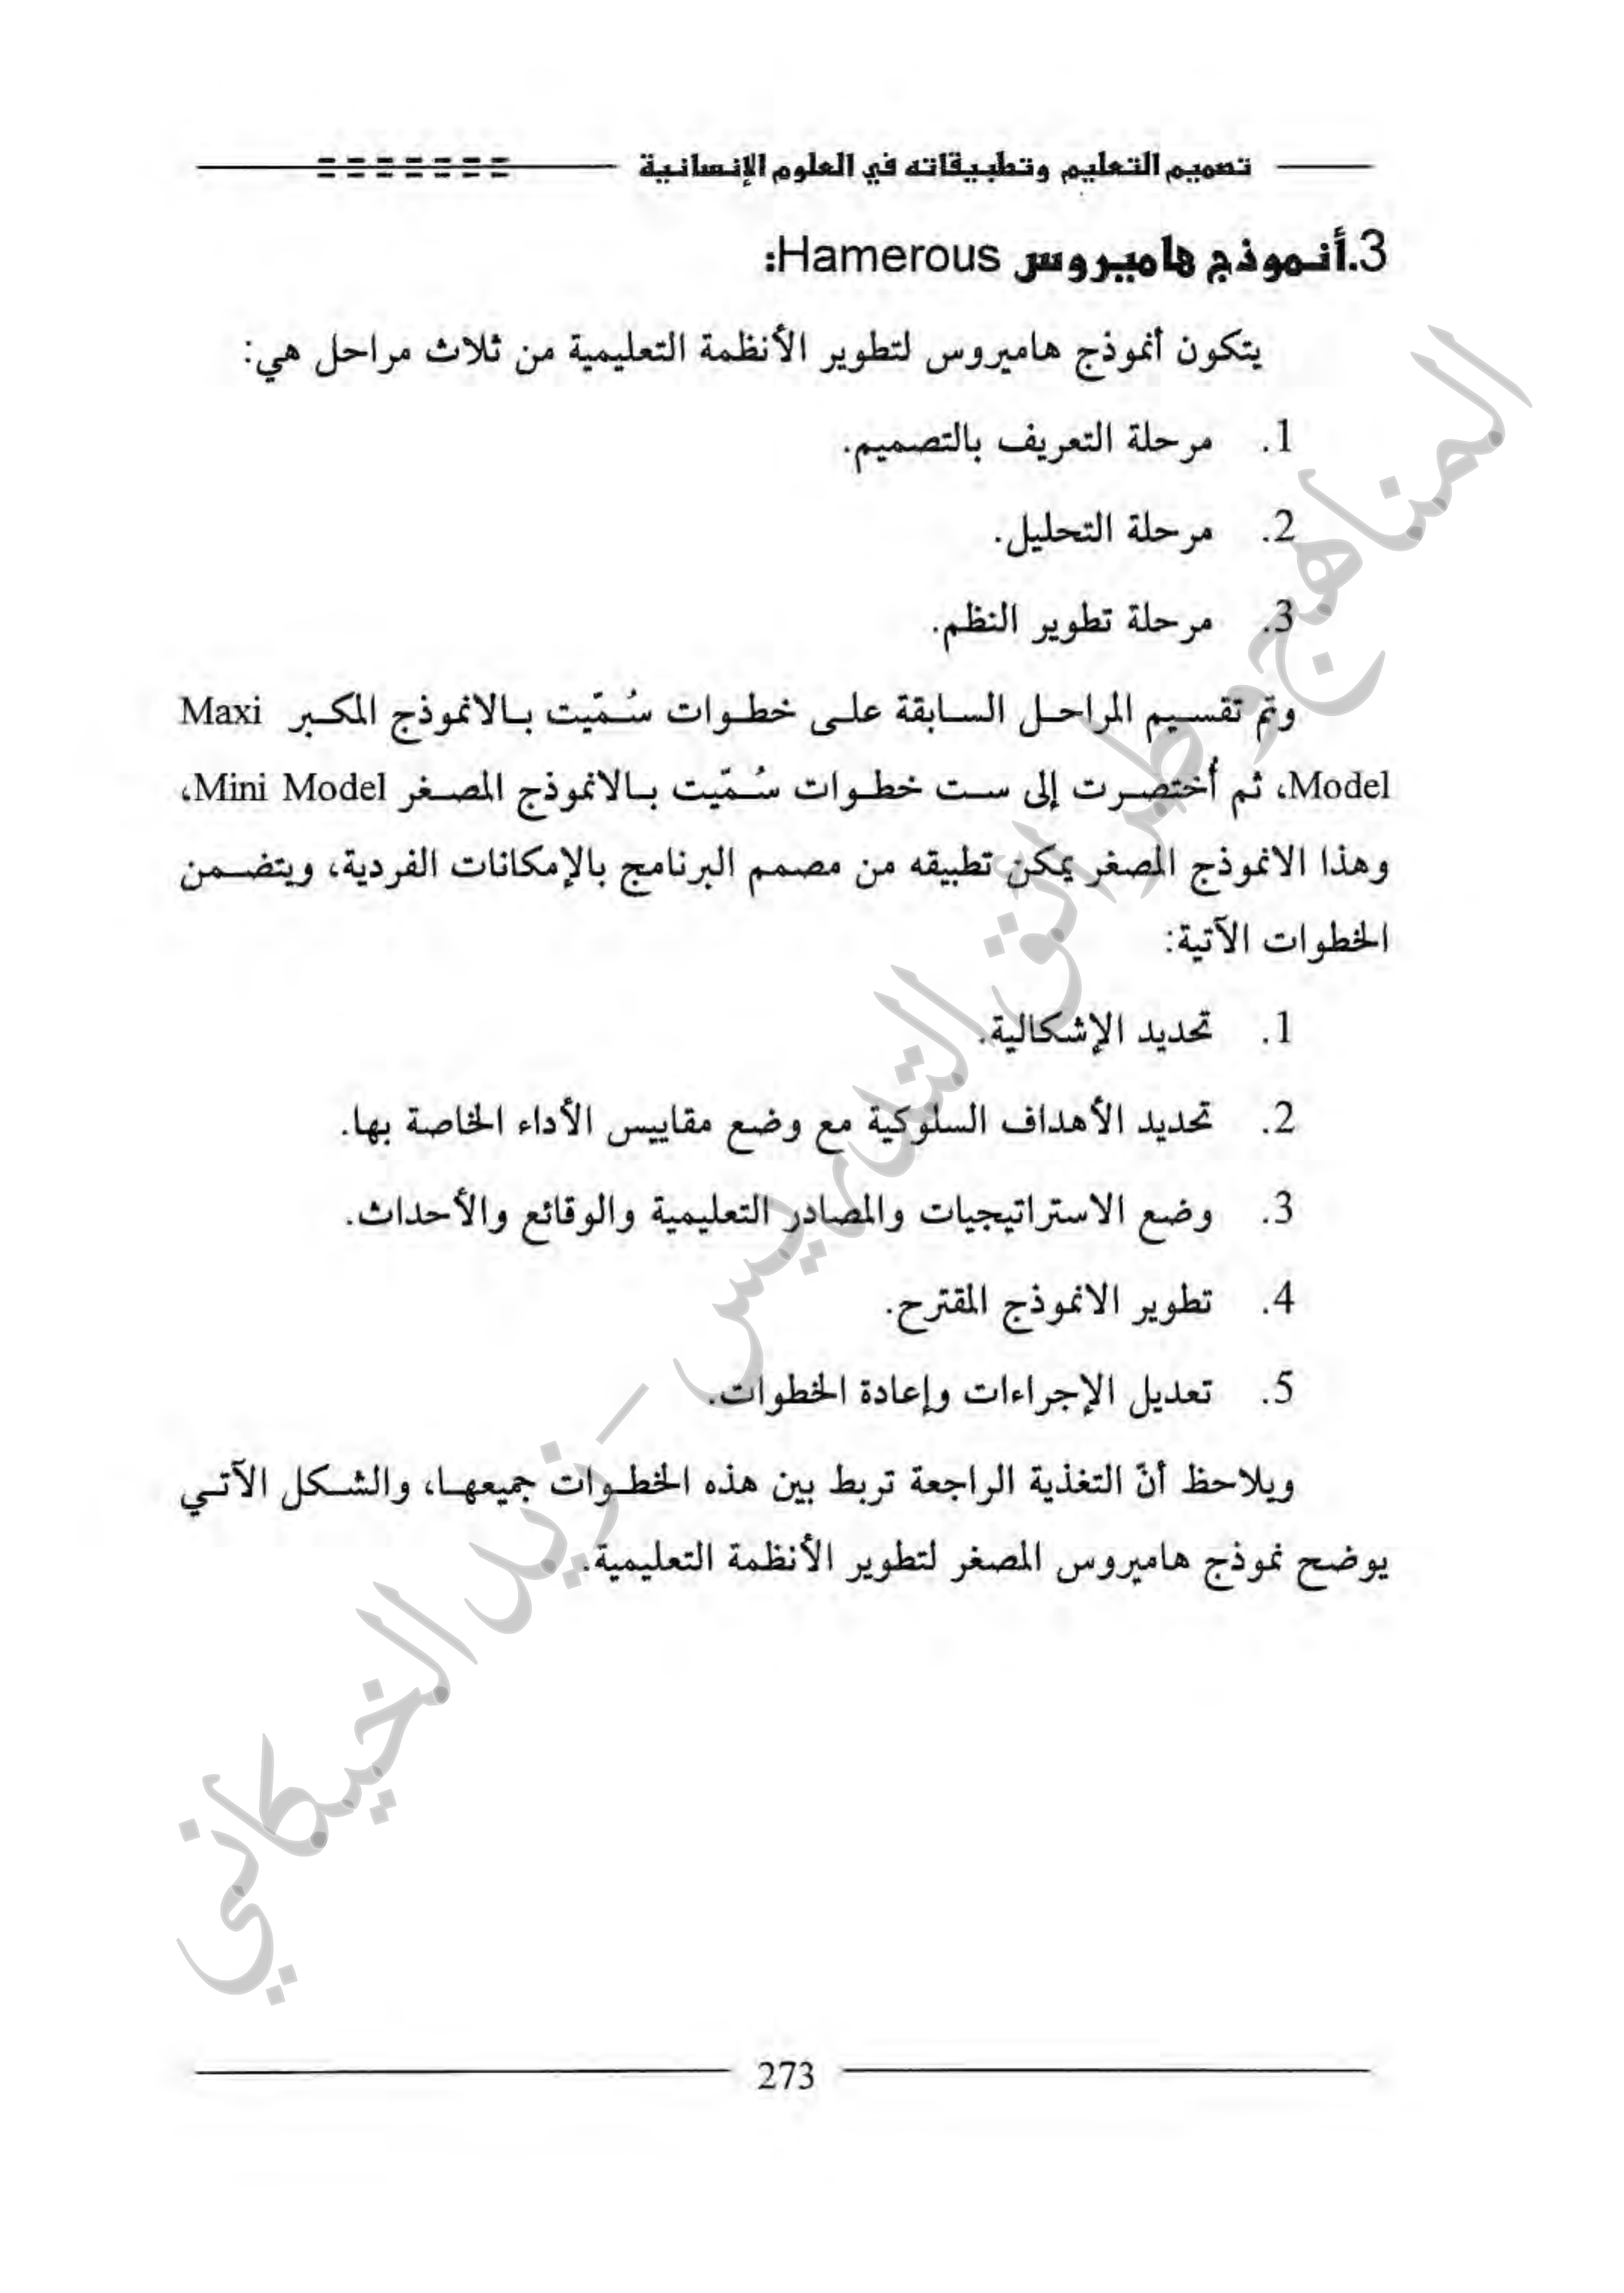 تصميم التعليم وتطبيقاته في العلوم الإنسانية
3.أنموذج هاميروس Hamerous:
يتكون أنموذج هاميروس لتطوير الأنظمة التعليمية من ثلاث مراحل هي:
1. مرحلة التعريف بالتصميم.
2. مرحلة التحليل.
3. مرحلة تطوير النظم.
وتم تقسيم المراحل السابقة على خطوات سُمّيت بالانموذج المكبر Maxi
Model، ثم أُختصرت إلى ست خطوات سُمّيت بالانموذج المصغر Mini Model،
وهذا الانموذج المصغر يمكن تطبيقه من مصمم البرنامج بالإمكانات الفردية، ويتضمن
الخطوات الآتية:
1. تحديد الإشكالية.
2. تحديد الأهداف السلوكية مع وضع مقاييس الأداء الخاصة بها.
3. وضع الاستراتيجيات والمصادر التعليمية والوقائع والأحداث.
4. تطوير الانموذج المقترح.
5. تعديل الإجراءات وإعادة الخطوات.
ويلاحظ أنّ التغذية الراجعة تربط بين هذه الخطوات جميعها، والشكل الآتي
يوضح نموذج هاميروس المصغر لتطوير الأنظمة التعليمية.
المناهج وطرائق التدريس - زيد الخيكاني
273